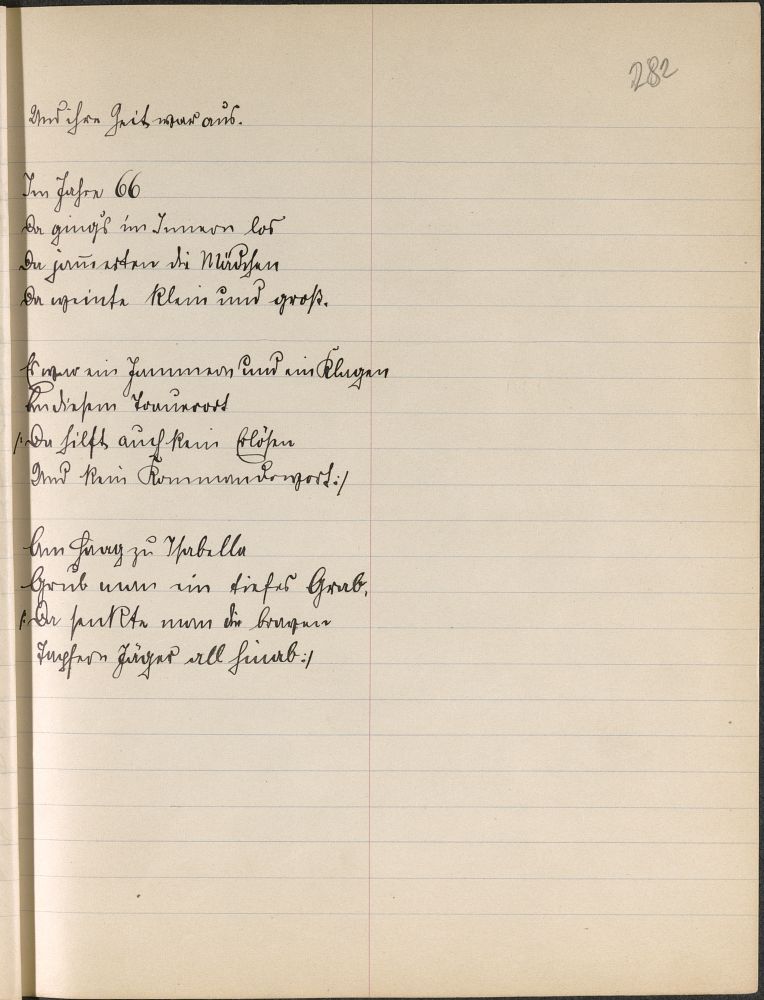 282
Und ihre Zeit war aus.
Im Jahre 66
Da ging's im Innern los
Da jam̄erten die Mädchen
Da weinte Klein und groß.
Es war ein Jammern und ein Klagen
An diesem Trauerort
/: Da hilft auch kein Erlösen
Und kein Kommandowort :/
Am Haag zu Isabella
Grub man ein tiefes Grab,
/: Da senkte man die braven
Tapfern Jäger all hinab :/